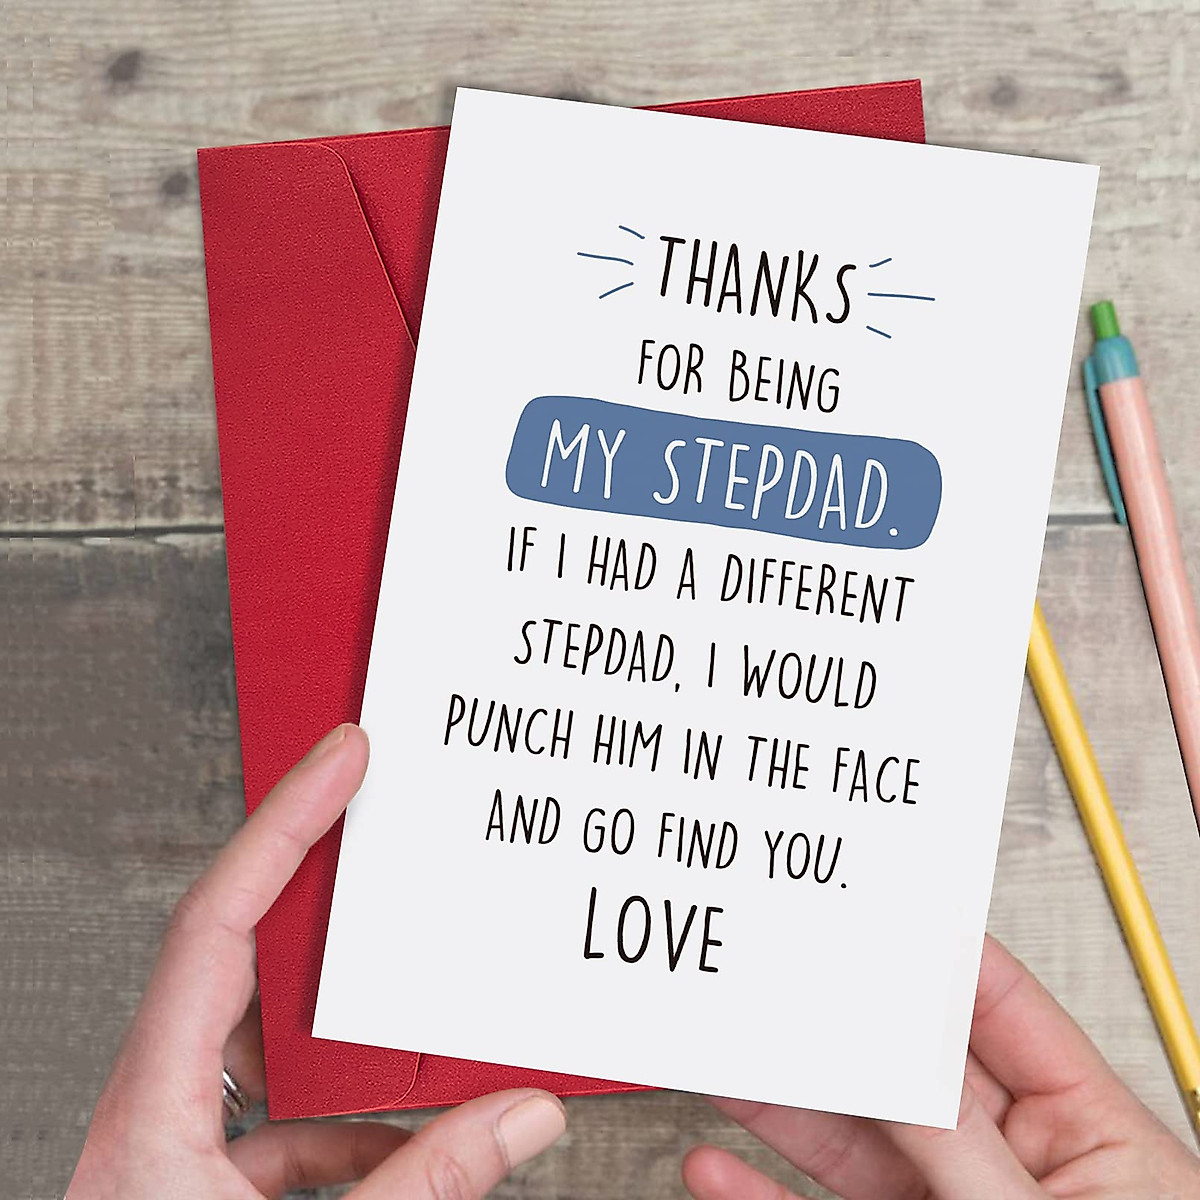 THANKS
FOR BEING
MY STEPDAD.
IF I HAD A DIFFERENT
STEPDAD, I WOULD
PUNCH HIM IN THE FACE
AND GO FIND YOU.
LOVE